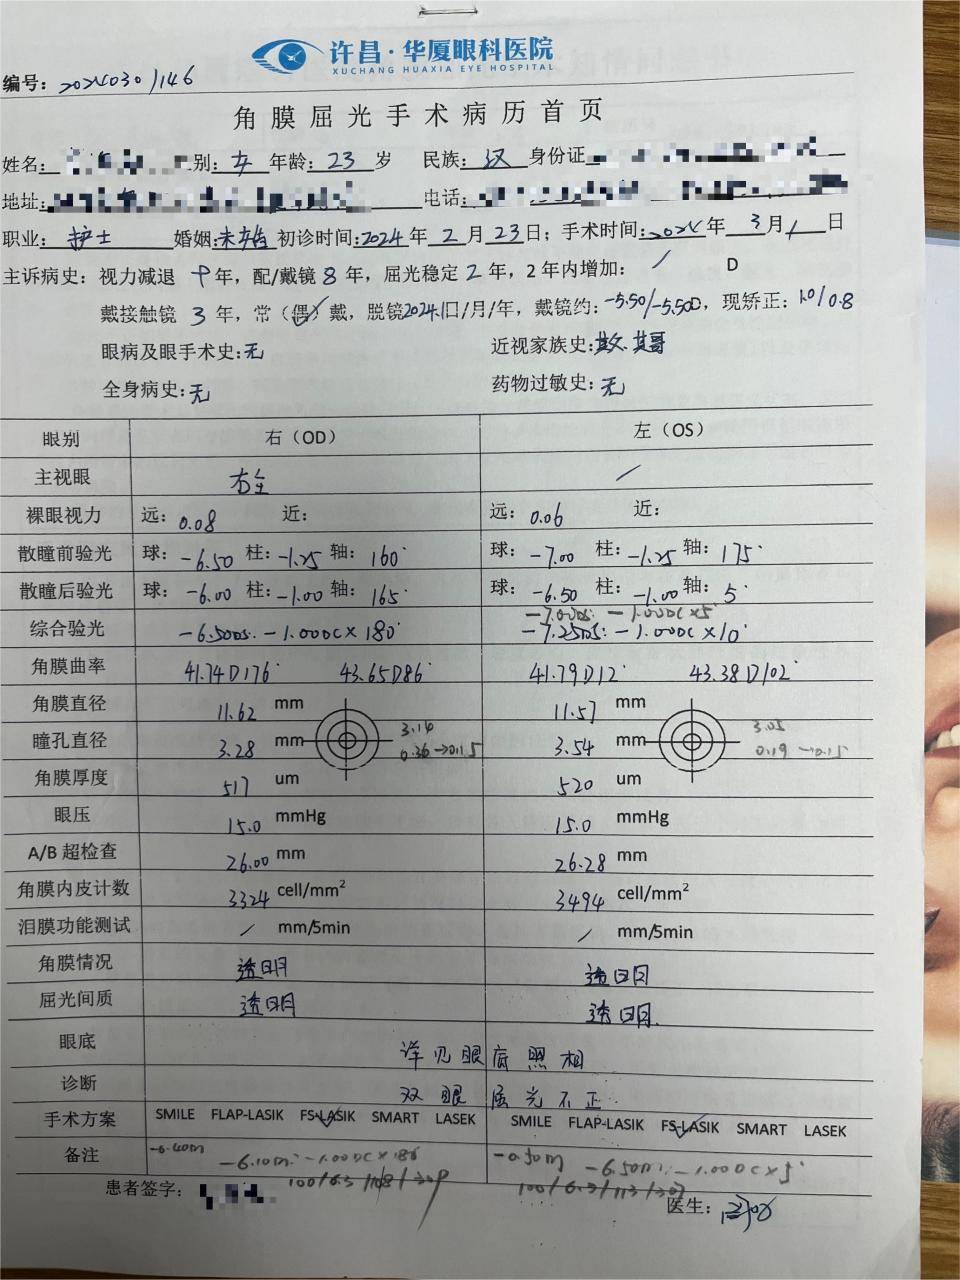 许昌·华厦眼科医院
XUCHANG HUAXIA EYE HOSPITAL
编号: 20240301146
角膜屈光手术病历首页
姓名: 别: 女 年龄: 23 岁 民族: 汉 身份证
地址: 电话:
职业: 护士 婚姻: 未婚 初诊时间: 2024年 2 月 23日; 手术时间: 2024 年 3月 1 日
主诉病史: 视力减退 年, 配/戴镜 8 年, 屈光稳定 2 年, 2 年内增加: / D
戴接触镜 3 年, 常(偶)戴, 脱镜2024.1口/月/年, 戴镜约: -5.50/-5.50D, 现矫正: 1.0/0.8
眼病及眼手术史: 无 近视家族史: 其父.其哥
全身病史: 无 药物过敏史: 无
眼别 右(OD) 左(OS)
主视眼 右全 /
裸眼视力 远: 0.08 近: 远: 0.06 近:
散瞳前验光 球: -6.50 柱: -1.25 轴: 160° 球: -7.00 柱: -1.25 轴: 175°
散瞳后验光 球: -6.00 柱: -1.00 轴: 165° 球: -6.50 柱: -1.00 轴: 5°
-7.00DS: -1.00DC×5°
综合验光 -6.50DS: -1.00DC×180° -7.25DS: -1.00DC×10°
角膜曲率 41.74D176° 43.65D86° 41.79D12° 43.38D102°
角膜直径 11.62 mm 11.57 mm
3.14 3.05
瞳孔直径 3.28 mm 0.36→0.15 3.54 mm 0.19→0.15
角膜厚度 517 um 520 um
眼压 15.0 mmHg 15.0 mmHg
A/B 超检查 26.00 mm 26.28 mm
角膜内皮计数 3324 cell/mm² 3494 cell/mm²
泪膜功能测试 / mm/5min / mm/5min
角膜情况 透明 透明
屈光间质 透明 透明.
眼底 详见眼底照相
诊断 双眼屈光不正.
手术方案 SMILE FLAP-LASIK FS-LASIK SMART LASEK SMILE FLAP-LASIK FS-LASIK SMART LASEK
备注 -1.00DC×180 -1.00DC×5°
100/6.5/
患者签字: 医生: